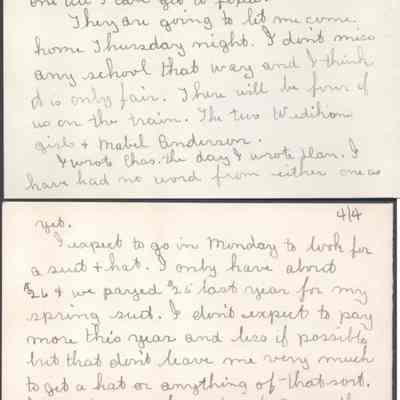 They are going to let me come
home Thursday night. I don't miss
any school that way and I think
it is only fair. There will be four of
us on the train. The two
girls + Mabel Anderson.
I wrote Chas. the day I wrote Jean. I
have had no word from either one as
4/4
yet.
I expect to go in Monday to look for
a suit + hat. I only have about
$26 + we payed $25 last year for my
spring suit. I don't expect to pay
more this year and less if possible
but that don't leave me very much
to get a hat or anything of that sort.